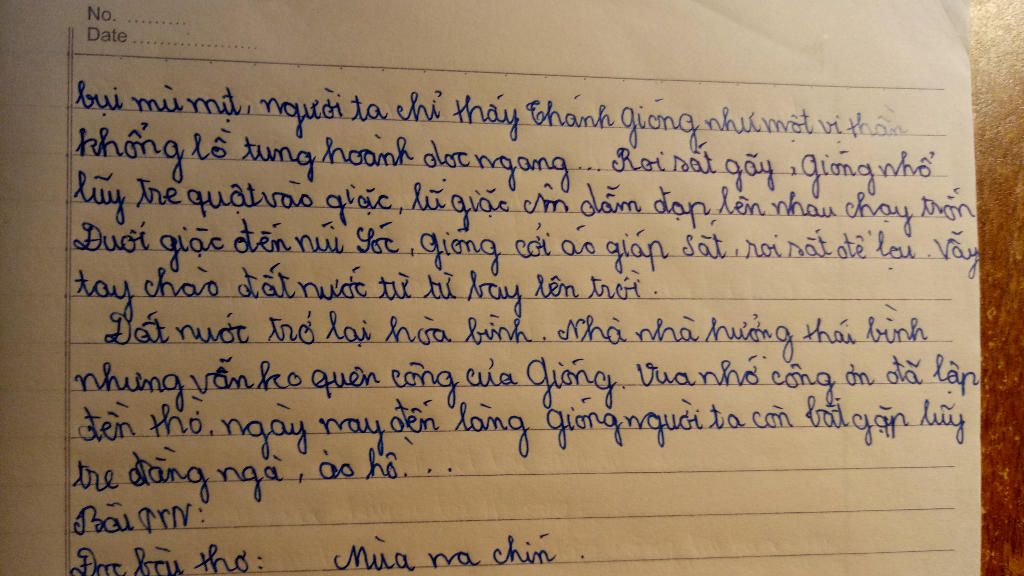 No. .........
Date ..................
bụi mù mịt, người ta chỉ thấy Thánh Gióng như một vị thần
khổng lồ tung hoành dọc ngang... Roi sắt gãy, Gióng nhổ
lũy tre quật vào giặc, lũ giặc dẫm đạp lên nhau chạy trốn
Đuổi giặc đến núi Sóc, Gióng cởi áo giáp sắt, roi sắt để lại. Vẫy
tay chào đất nước từ từ bay lên trời.
Đất nước trở lại hòa bình. Nhà nhà hưởng thái bình
nhưng vẫn ko quên công của Gióng. Vua nhớ công ơn đã lập
đền thờ. ngày nay đến làng Gióng người ta còn bắt gặp lũy
tre đằng ngà, ao hồ...
Bài TVN:
Đọc bài thơ: Mùa na chín.